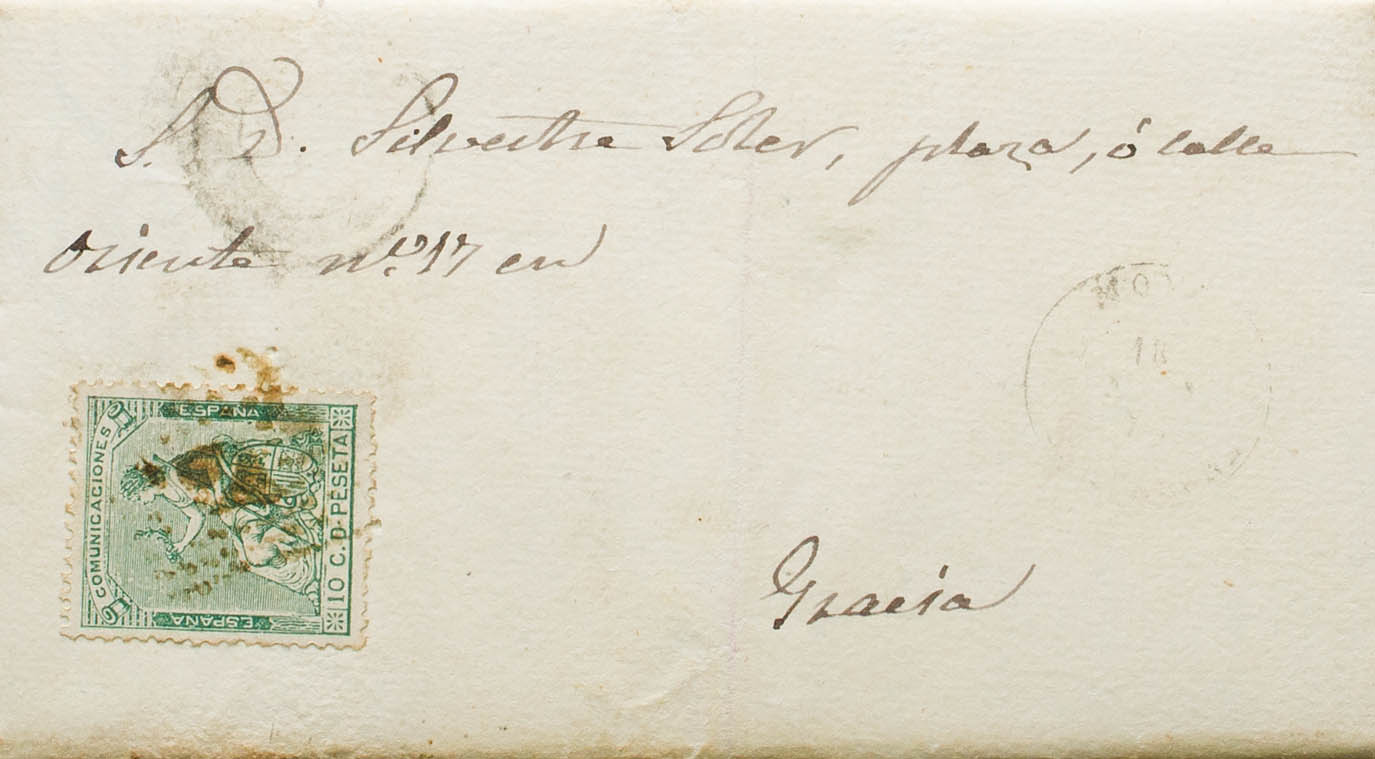 S. D. Silvestre Soler, plaza, ó calle
oriente nº. 17 en
Gracia
ESPAÑA
COMUNICACIONES
10 C. D PESETA
ESPAÑA
18